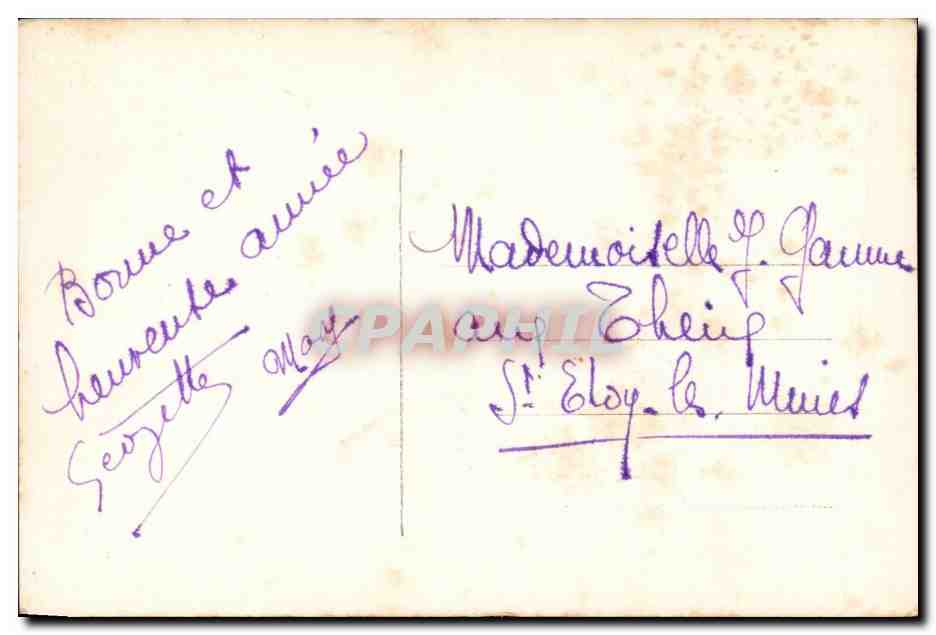 Bonne et
heureuse année
Géozette May
Mademoiselle J. Gamme
aux Theix
St Eloy-les-Mines
CPAPHIL